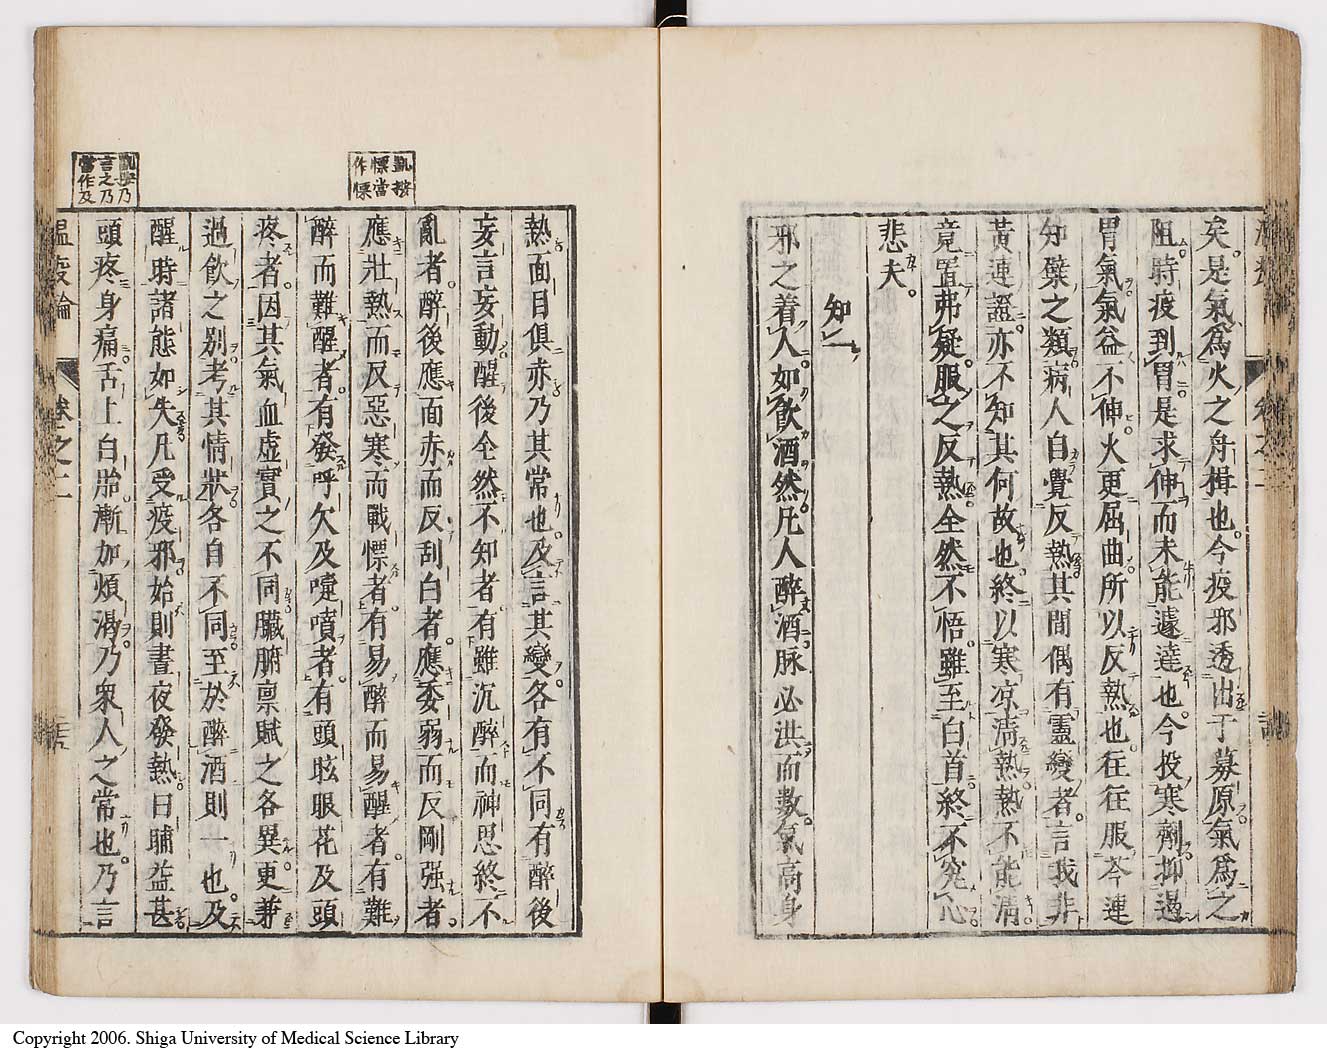 矣是氣爲火之舟楫也今疫邪透出于募原氣爲之
阻時疫到胃是求伸而未能遽達也今投寒劑抑遏
胃氣氣益不伸火更屈曲所以反熱也往往服芩連
知檗之類病人自覺反熱其間偶有靈變者言我非
黃連證亦不知其何故也終以寒凉淸熱熱不能淸
竟置弗疑服之反熱全然不悟雖至白首終不究心
悲夫
知一
邪之着人如飮酒然凡人醉酒脉必洪而數氣高身
熱面目俱赤乃其常也及言其變各有不同有醉後
妄言妄動醒後全然不知者有雖沉醉而神思終不
亂者醉後應面赤而反刮白者應委弱而反剛强者
應壯熱而反惡寒而戰慄者有易醉而易醒者有難
醉而難醒者有發呼欠及嚔噴者有頭眩眼花及頭
疼者因其氣血虛實之不同臟腑禀賦之各異更兼
過飮之别考其情狀各自不同至於醉酒則一也及
醒時諸態如失凡受疫邪始則晝夜發熱日晡益甚
頭疼身痛舌上白胎漸加煩渴乃衆人之常也乃言
凱按
慄當
作慄
凱按乃
言之乃
當作及
溫疫論 卷之二
Copyright 2006. Shiga University of Medical Science Library